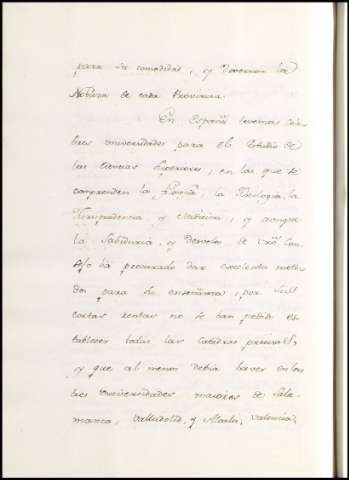 para su comodidad, y Governar la
Nobleza de cada Provincia.
En España tenemos cele-
bres universidades para el Estudio de
las ciencias superiores, en las que se
comprenden la Filosofia, la Theologia, la
Jurisprudencia y Medicina, y aunque
la Sabiduria, y Desvelos de vrõ Con-
sejo ha procurado dar excelente meto-
do para su enseñanza, por sus
cortas rentas no se han podido es-
tablecer todas las Catedras precisas,
y que al menos debia haver en las
tres universidades maiores de Sala-
manca, Valladolid, y Alcala, Valencia,